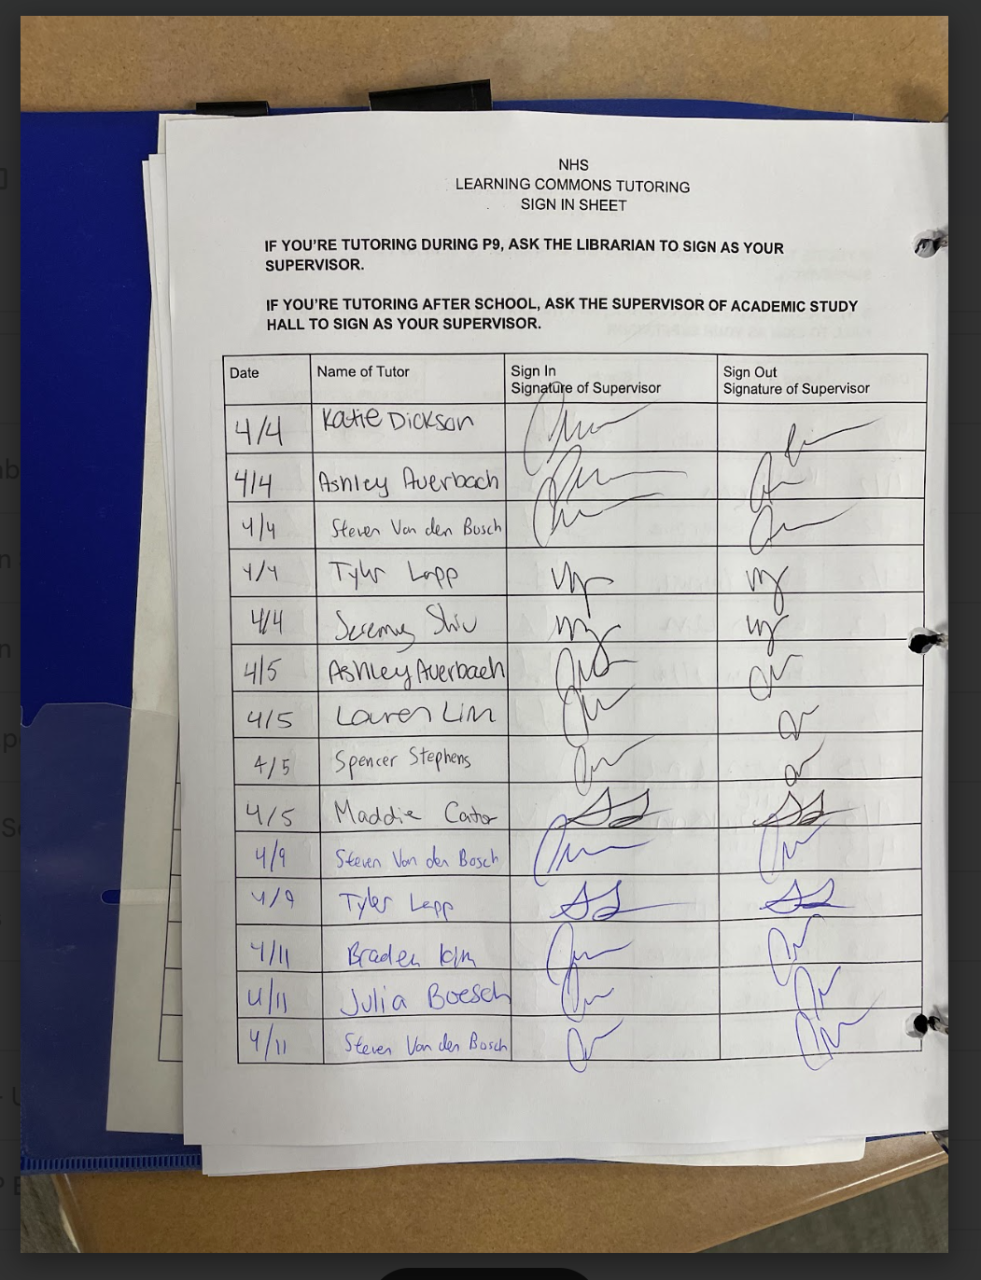 NHS
LEARNING COMMONS TUTORING
SIGN IN SHEET
IF YOU'RE TUTORING DURING P9, ASK THE LIBRARIAN TO SIGN AS YOUR
SUPERVISOR.
IF YOU'RE TUTORING AFTER SCHOOL, ASK THE SUPERVISOR OF ACADEMIC STUDY
HALL TO SIGN AS YOUR SUPERVISOR.
Date Name of Tutor Sign In Signature of Supervisor Sign Out Signature of Supervisor
4/4 Katie Dickson
4/4 Ashley Auerbach
4/4 Steven Van den Bosch
4/4 Tyler Lapp
4/4 Jeremy
4/5 Ashley Auerbach
4/5 Lauren Lim
4/5 Spencer Stephens
4/5 Maddie
4/9 Steven Van den Bosch
4/9 Tyler Lapp
4/11 Braden Kim
4/11 Julia Boesch
4/11 Steven Van den Bosch